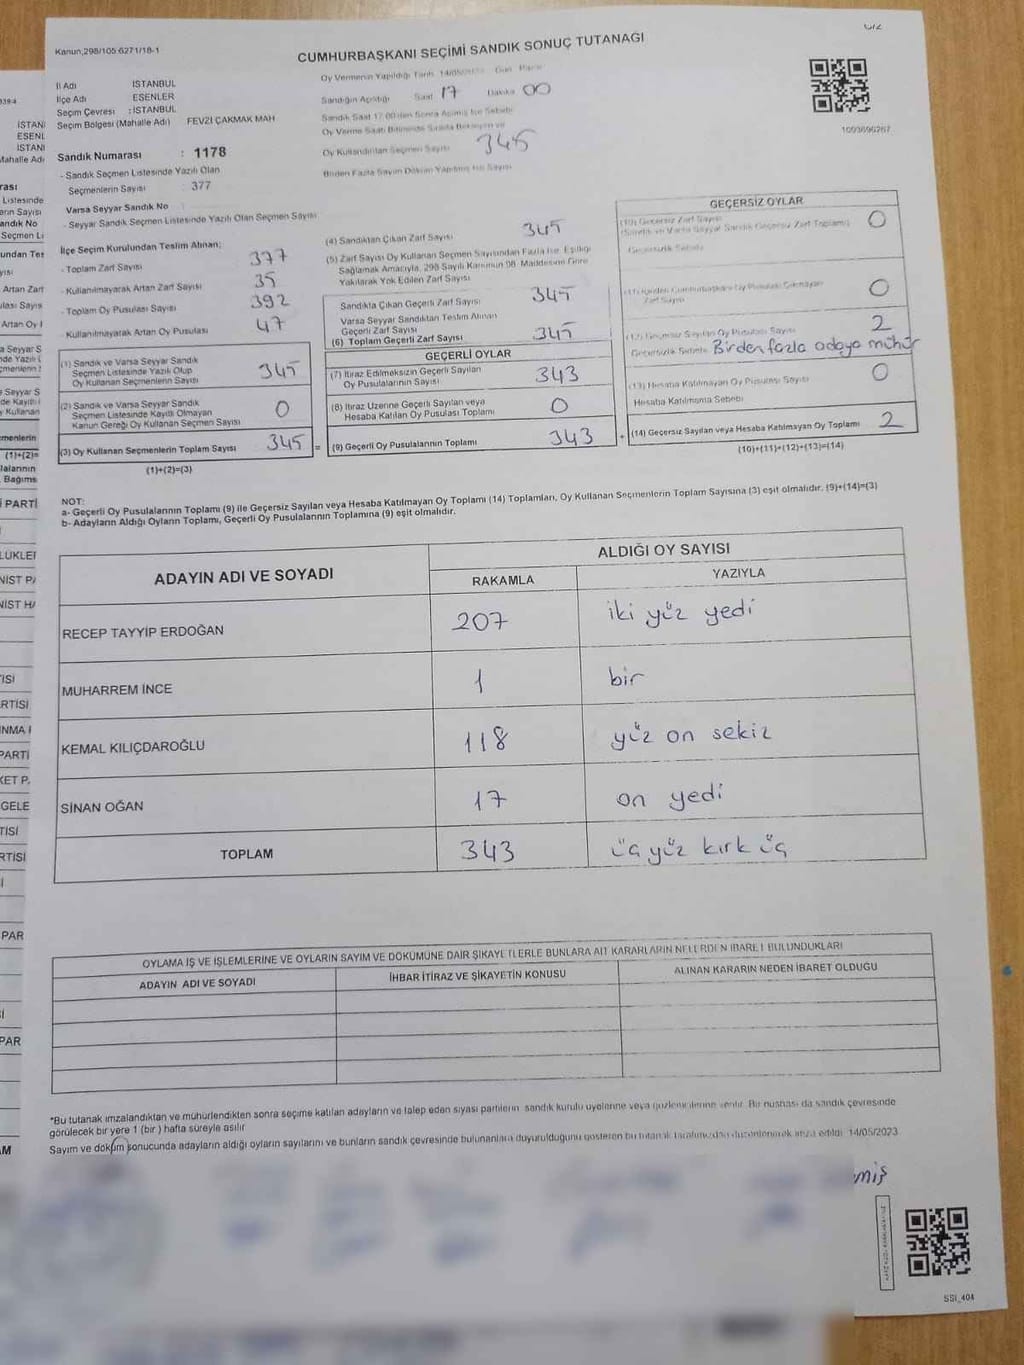 Kanun,298/105 6271/18-1
CUMHURBAŞKANI SEÇİMİ SANDIK SONUÇ TUTANAĞI
İl Adı İSTANBUL
İlçe Adı ESENLER
Seçim Çevresi : İSTANBUL
Seçim Bölgesi (Mahalle Adı) FEVZİ ÇAKMAK MAH
Sandık Numarası : 1178
- Sandık Seçmen Listesinde Yazılı Olan
Seçmenlerin Sayısı : 377
Varsa Seyyar Sandık No
- Seyyar Sandık Seçmen Listesinde Yazılı Olan Seçmen Sayısı
Oy Vermenin Yapıldığı Tarih 14/05/2023 Gün Pazar
Sandığın Açıldığı Saat 17 Dakika 00
Sandık Saat 17.00'den Sonra Açılmış İse Sebebi
Oy Verme Saati Bitiminde Sırada Bekleyen ve
Oy Kullandırılan Seçmen Sayısı 345
Birden Fazla Sayım Döküm Yapılmış İse Sayısı
1093696267
İlçe Seçim Kurulundan Teslim Alınan;
- Toplam Zarf Sayısı 377
- Kullanılmayarak Artan Zarf Sayısı 35
- Toplam Oy Pusulası Sayısı 392
- Kullanılmayarak Artan Oy Pusulası 47
(1) Sandık ve Varsa Seyyar Sandık
Seçmen Listesinde Yazılı Olup
Oy Kullanan Seçmenlerin Sayısı 345
(2) Sandık ve Varsa Seyyar Sandık
Seçmen Listesinde Kayıtlı Olmayan
Kanun Gereği Oy Kullanan Seçmen Sayısı 0
(3) Oy Kullanan Seçmenlerin Toplam Sayısı 345 =
(1)+(2)=(3)
(4) Sandıktan Çıkan Zarf Sayısı 345
(5) Zarf Sayısı Oy Kullanan Seçmen Sayısından Fazla İse, Eşitliği
Sağlamak Amacıyla, 298 Sayılı Kanunun 98. Maddesine Göre
Yakılarak Yok Edilen Zarf Sayısı
Sandıkta Çıkan Geçerli Zarf Sayısı 345
Varsa Seyyar Sandıktan Teslim Alınan
Geçerli Zarf Sayısı
(6) Toplam Geçerli Zarf Sayısı 345
GEÇERLİ OYLAR
(7) İtiraz Edilmeksizin Geçerli Sayılan
Oy Pusulalarının Sayısı 343
(8) İtiraz Üzerine Geçerli Sayılan veya
Hesaba Katılan Oy Pusulası Toplamı 0
(9) Geçerli Oy Pusulalarının Toplamı 343 +
GEÇERSİZ OYLAR
(10) Geçersiz Zarf Sayısı
(Sandık ve Varsa Seyyar Sandık Geçersiz Zarf Toplamı) 0
Geçersizlik Sebebi
(11) İçinden Cumhurbaşkanı Oy Pusulası Çıkmayan
Zarf Sayısı 0
(12) Geçersiz Sayılan Oy Pusulası Sayısı 2
Geçersizlik Sebebi Birden fazla adaya mühür
(13) Hesaba Katılmayan Oy Pusulası Sayısı 0
Hesaba Katılmama Sebebi
(14) Geçersiz Sayılan veya Hesaba Katılmayan Oy Toplamı 2
(10)+(11)+(12)+(13)=(14)
NOT:
a- Geçerli Oy Pusulalarının Toplamı (9) ile Geçersiz Sayılan veya Hesaba Katılmayan Oy Toplamı (14) Toplamları, Oy Kullanan Seçmenlerin Toplam Sayısına (3) eşit olmalıdır. (9)+(14)=(3)
b- Adayların Aldığı Oyların Toplamı, Geçerli Oy Pusulalarının Toplamına (9) eşit olmalıdır.
ADAYIN ADI VE SOYADI ALDIĞI OY SAYISI
RAKAMLA YAZIYLA
RECEP TAYYİP ERDOĞAN 207 iki yüz yedi
MUHARREM İNCE 1 bir
KEMAL KILIÇDAROĞLU 118 yüz on sekiz
SİNAN OĞAN 17 on yedi
TOPLAM 343 üç yüz kırk üç
OYLAMA İŞ VE İŞLEMLERİNE VE OYLARIN SAYIM VE DÖKÜMÜNE DAİR ŞİKAYETLERLE BUNLARA AİT KARARLARIN NELERDEN İBARET BULUNDUKLARI
ADAYIN ADI VE SOYADI İHBAR İTİRAZ VE ŞİKAYETİN KONUSU ALINAN KARARIN NEDEN İBARET OLDUĞU
*Bu tutanak imzalandıktan ve mühürlendikten sonra seçime katılan adayların ve talep eden siyasi partilerin sandık kurulu üyelerine veya gözlemcilerine verilir. Bir nüshası da sandık çevresinde
görülecek bir yere 1 (bir) hafta süreyle asılır
Sayım ve döküm sonucunda adayların aldığı oyların sayılarını ve bunların sandık çevresinde bulunanlara duyurulduğunu gösteren bu tutanak tarafımızdan düzenlenerek imza edildi. 14/05/2023
miş
SSI_404